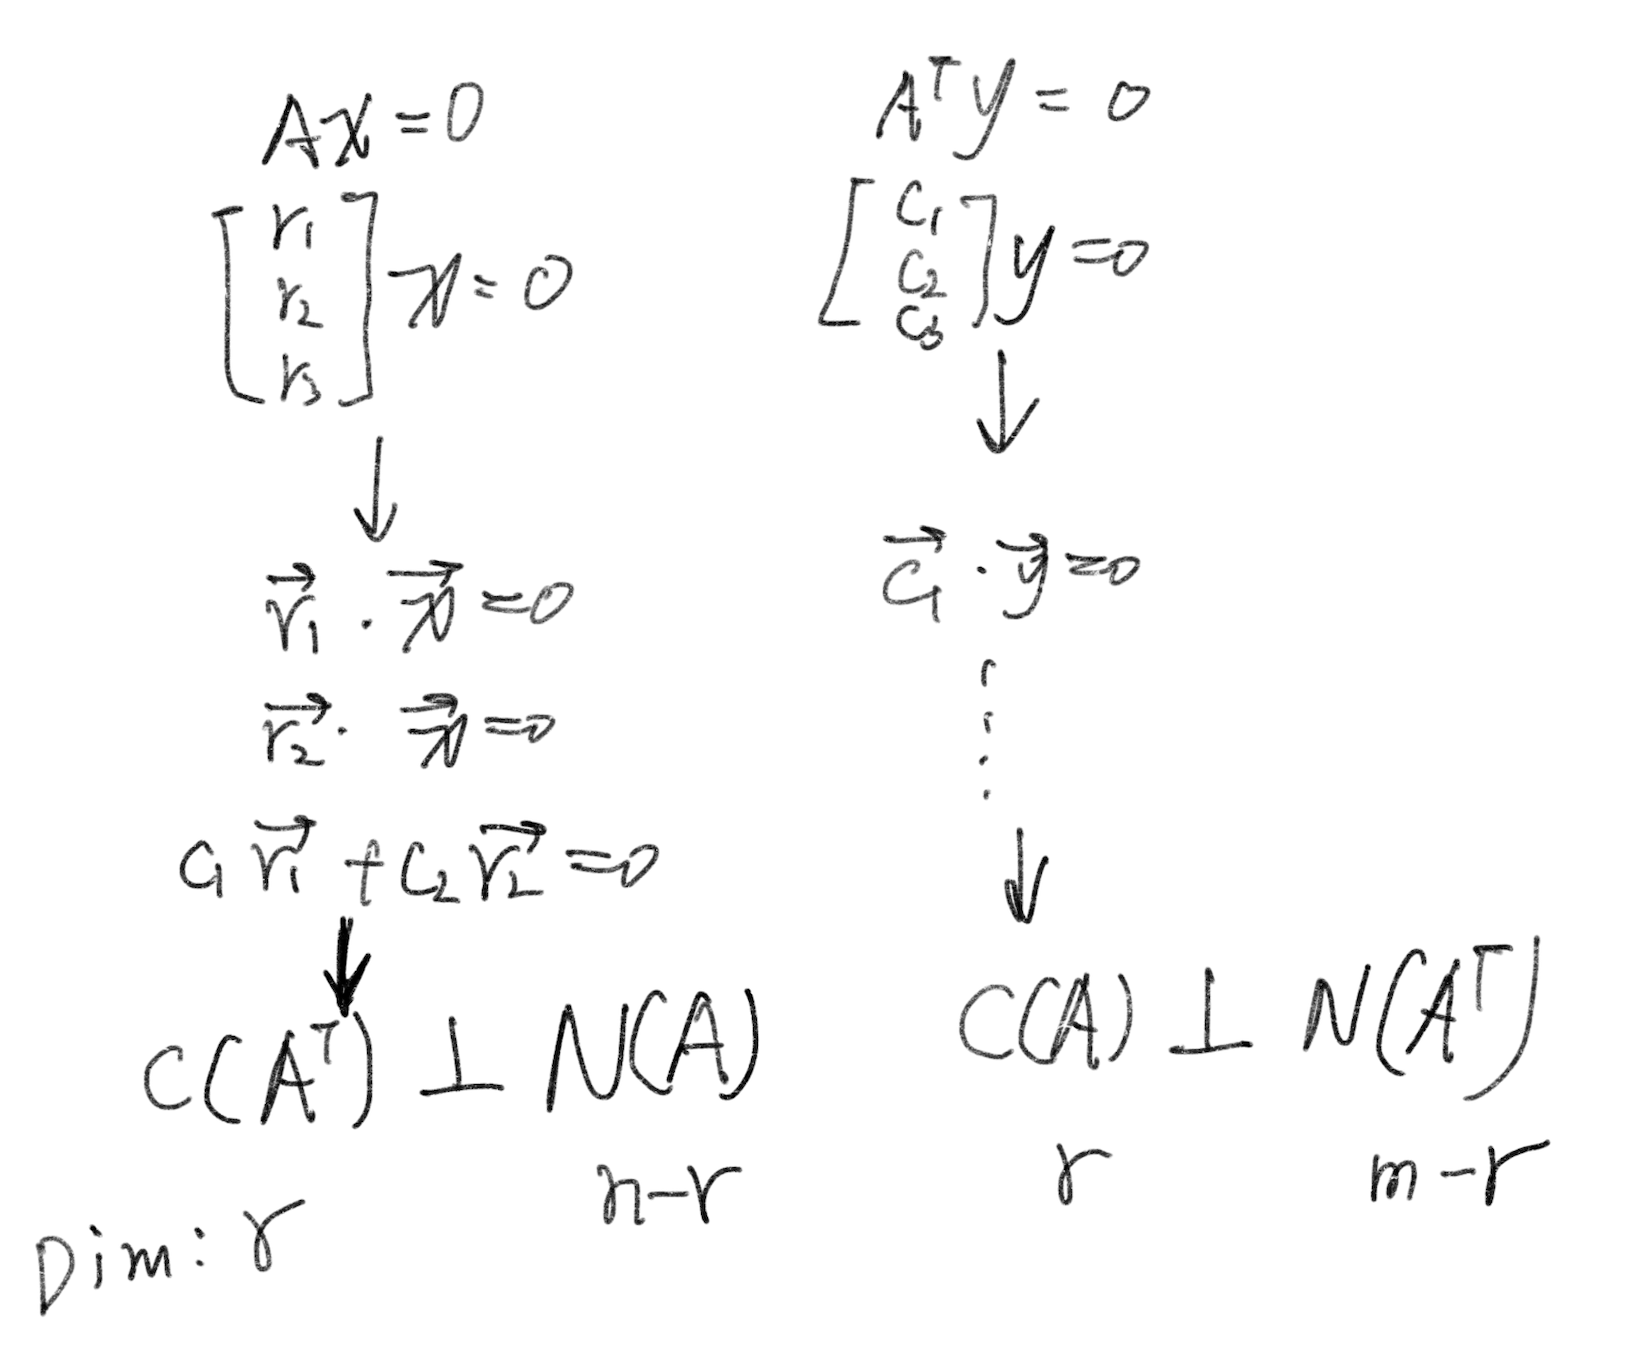 Ax=0
[r₁
r₂
r₃] x=0
↓
r₁⃗ · x⃗=0
r₂⃗ · x⃗=0
c₁ r₁⃗ + c₂ r₂⃗ =0
↓
C(Aᵀ) ⊥ N(A)
Dim: r n-r
Aᵀy=0
[c₁
c₂
c₃] y=0
↓
c₁⃗ · y⃗=0
⋮
↓
C(A) ⊥ N(Aᵀ)
r m-r